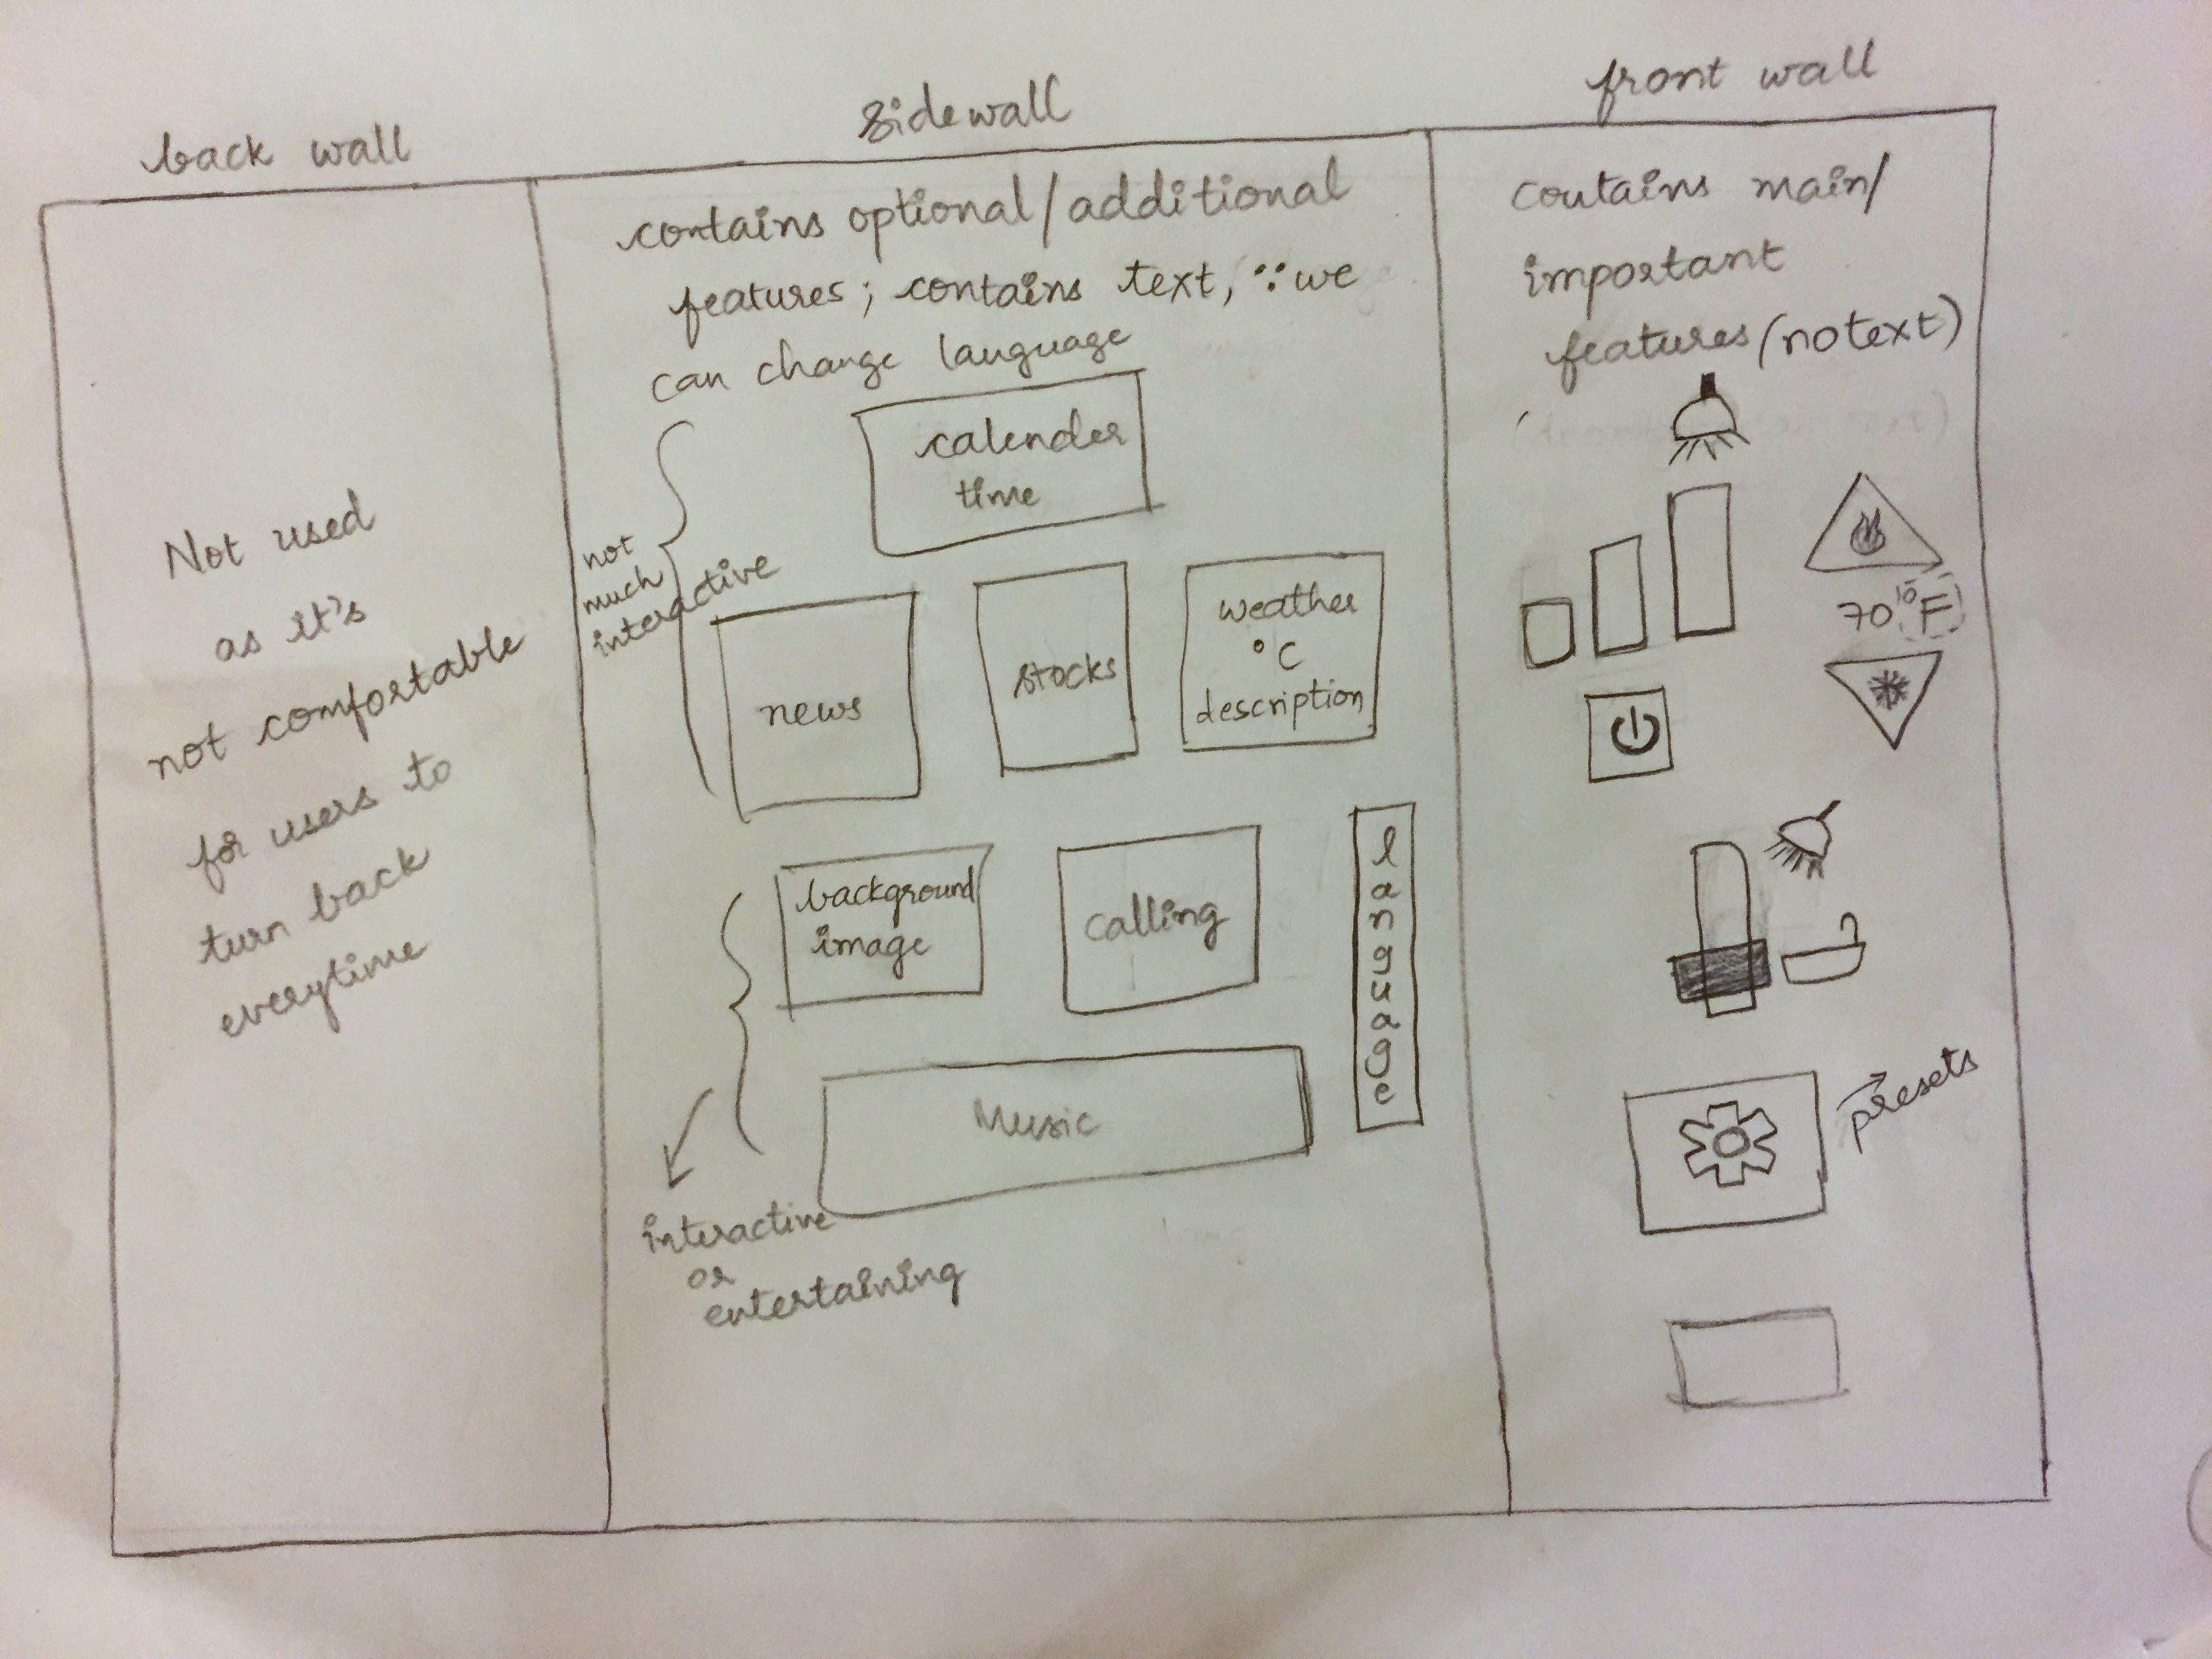 back wall
Not used
as it's
not comfortable
for users to
turn back
everytime
sidewall
contains optional/additional
features; contains text, ∵ we
can change language
not
much
interactive
calender
time
news
stocks
weather
°C
description
background
image
calling
language
Music
interactive
or
entertaining
front wall
contains main/
important
features (no text)
70°F
presets